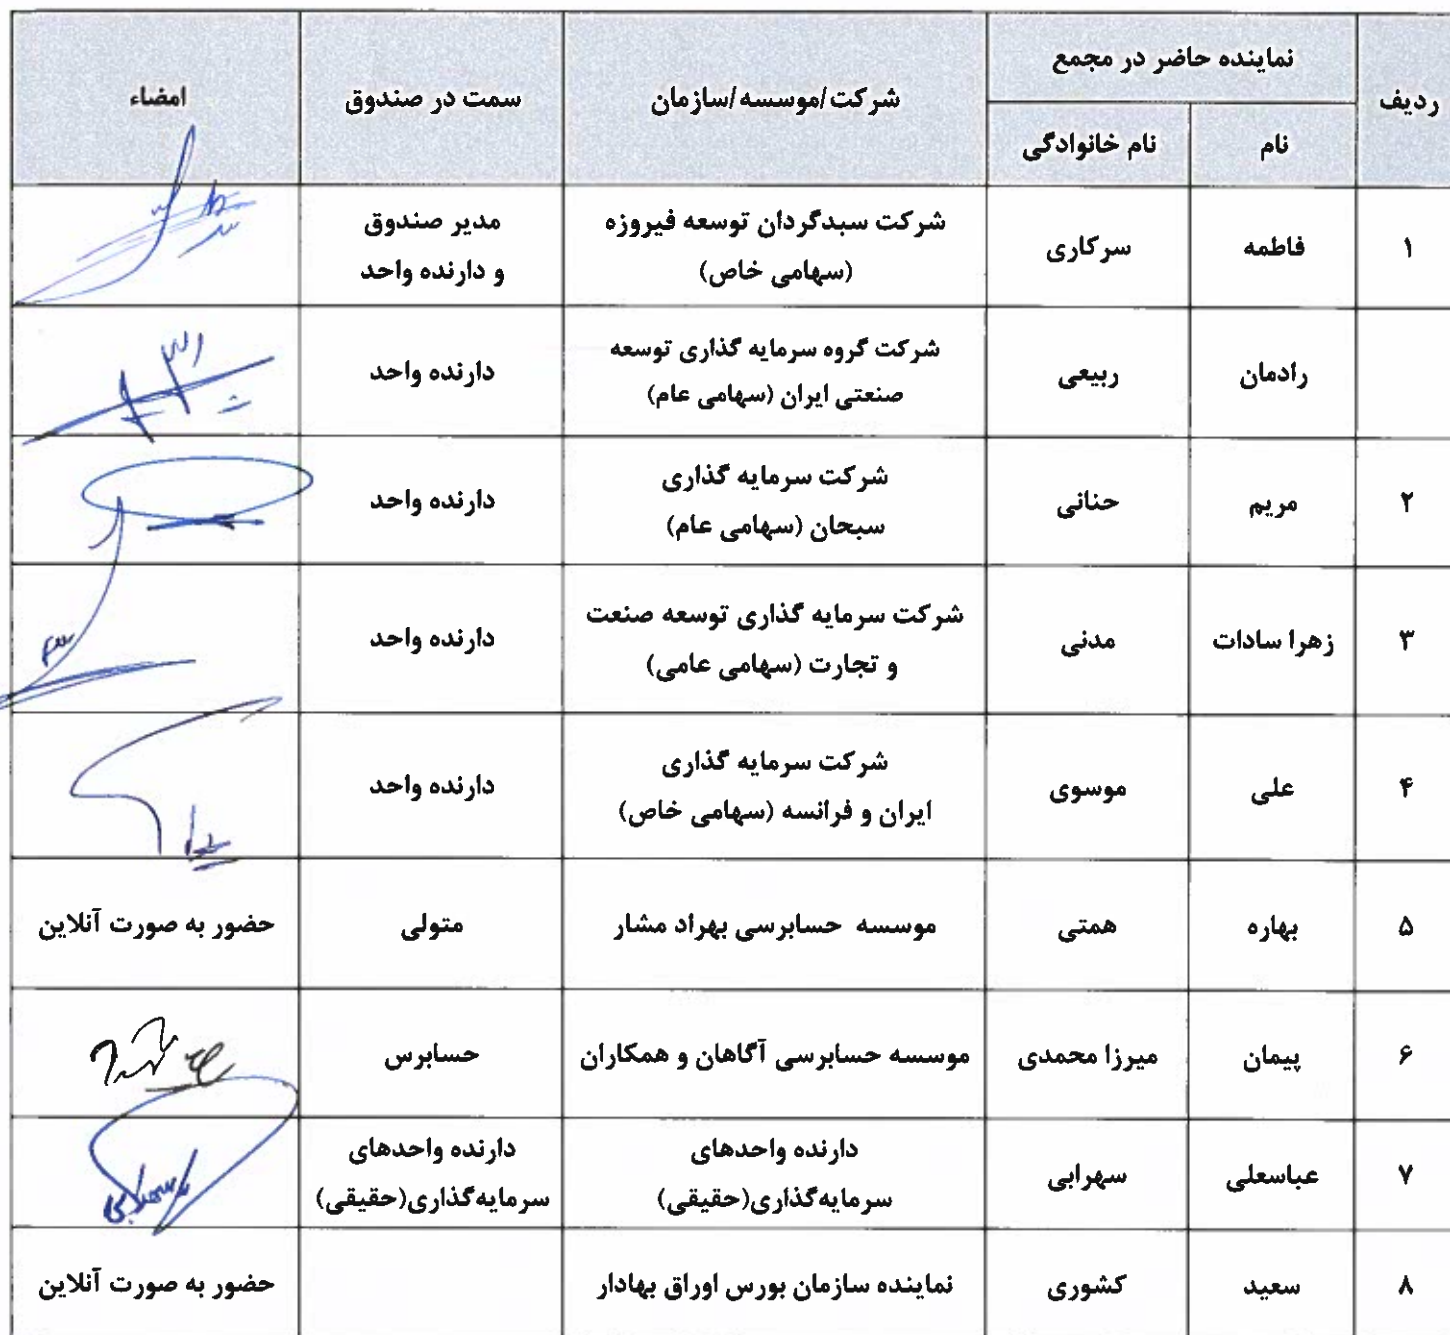 ردیف
نماینده حاضر در مجمع
نام
نام خانوادگی
شرکت/موسسه/سازمان
سمت در صندوق
امضاء
۱
فاطمه
سرکاری
شرکت سبدگردان توسعه فیروزه
(سهامی خاص)
مدیر صندوق
و دارنده واحد
رادمان
ربیعی
شرکت گروه سرمایه گذاری توسعه
صنعتی ایران (سهامی عام)
دارنده واحد
۲
مریم
حنانی
شرکت سرمایه گذاری
سبحان (سهامی عام)
دارنده واحد
۳
زهرا سادات
مدنی
شرکت سرمایه گذاری توسعه صنعت
و تجارت (سهامی عامی)
دارنده واحد
۴
علی
موسوی
شرکت سرمایه گذاری
ایران و فرانسه (سهامی خاص)
دارنده واحد
۵
بهاره
همتی
موسسه حسابرسی بهراد مشار
متولی
حضور به صورت آنلاین
۶
پیمان
میرزا محمدی
موسسه حسابرسی آگاهان و همکاران
حسابرس
۷
عباسعلی
سهرابی
دارنده واحدهای
سرمایه‌گذاری(حقیقی)
دارنده واحدهای
سرمایه‌گذاری(حقیقی)
۸
سعید
کشوری
نماینده سازمان بورس اوراق بهادار
حضور به صورت آنلاین